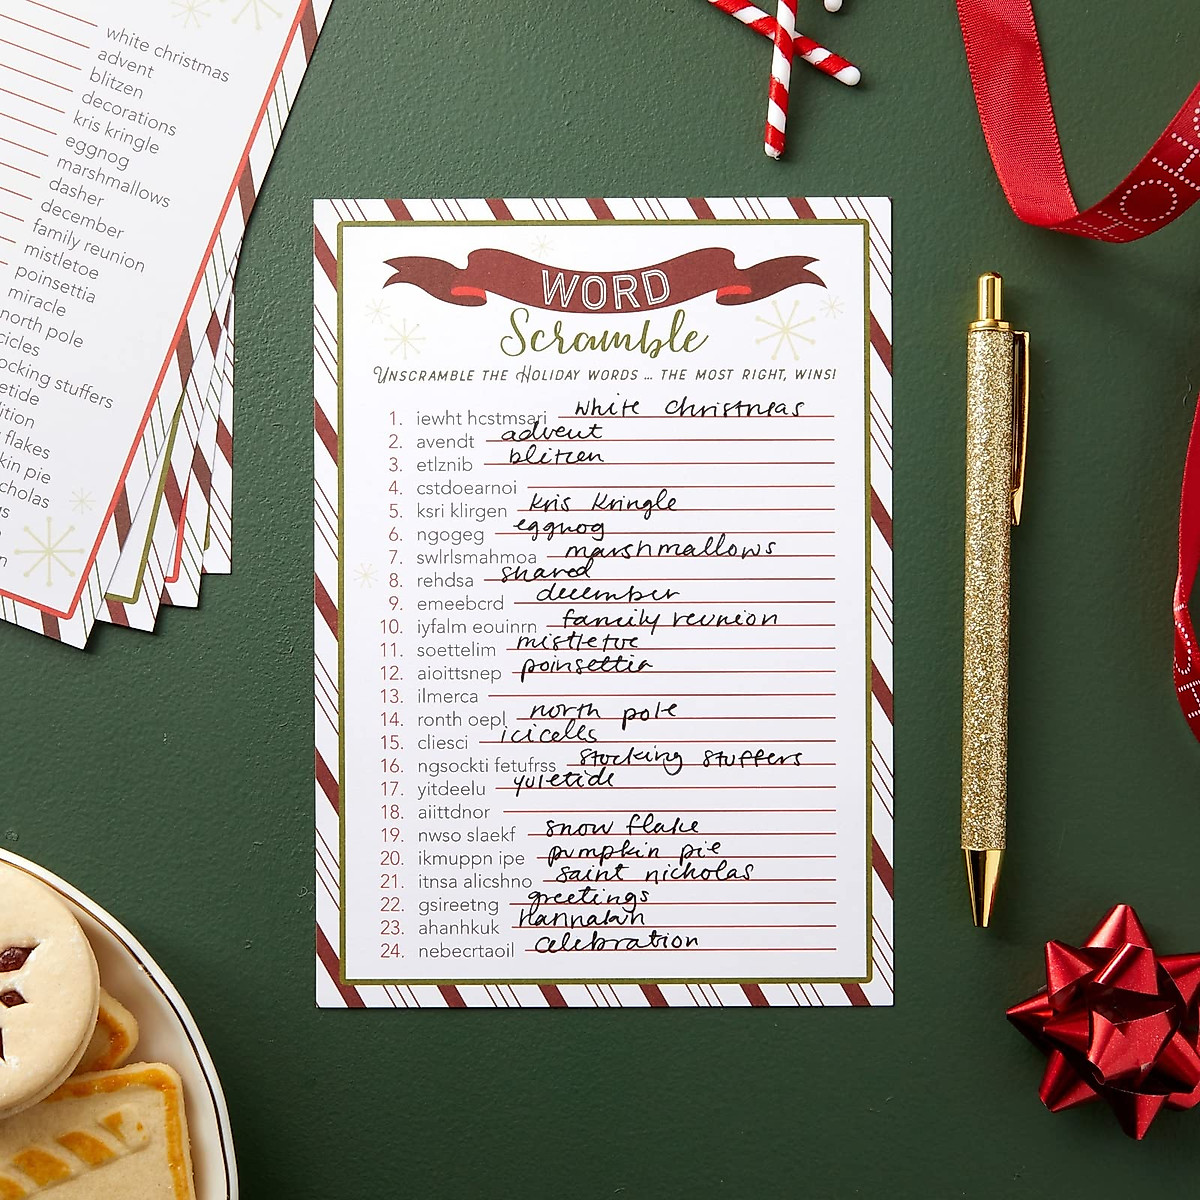 white christmas
advent
blitzen
decorations
kris kringle
eggnog
marshmallows
dasher
december
family reunion
mistletoe
poinsettia
miracle
north pole
icicles
ocking stuffers
etide
ition
flakes
kin pie
cholas
gs
n
WORD
Scramble
UNSCRAMBLE THE HOLIDAY WORDS ... THE MOST RIGHT, WINS!
1. iewht hcstmsari white christmas
2. avendt advent
3. etlznib blitzen
4. cstdoearnoi
5. ksri klirgen kris kringle
6. ngogeg eggnog
7. swlrlsmahmoa marshmallows
8. rehdsa shared
9. emeebcrd december
10. iyfalm eouinrn family reunion
11. soettelim mistletoe
12. aioittsnep poinsettia
13. ilmerca
14. ronth oepl north pole
15. cliesci icicells
16. ngsockti fetufrss stocking stuffers
17. yitdeelu yuletide
18. aiittdnor
19. nwso slaekf snow flake
20. ikmuppn ipe pumpkin pie
21. itnsa alicshno saint nicholas
22. gsireetng greetings
23. ahanhkuk Hannakah
24. nebecrtaoil celebration